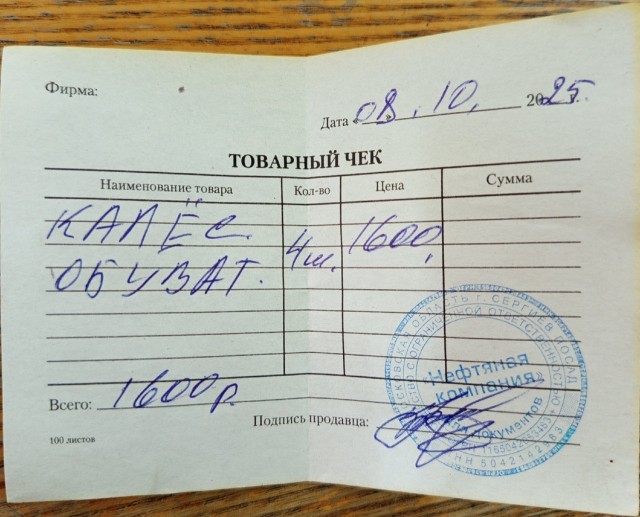 Фирма:
Дата «08.10. 2025г.
ТОВАРНЫЙ ЧЕК
Наименование товара Кол-во Цена Сумма
КАЛЁС. 4ш. 1600,
ОБУВАТ.
Всего: 1600 р.
Подпись продавца:
100 листов
МОСКОВСКАЯ ОБЛАСТЬ г. СЕРГИЕВ ПОСАД
ОБЩЕСТВО С ОГРАНИЧЕННОЙ ОТВЕТСТВЕННОСТЬЮ
«Нефтяная
компания»
для документов
ИНН 5042142383